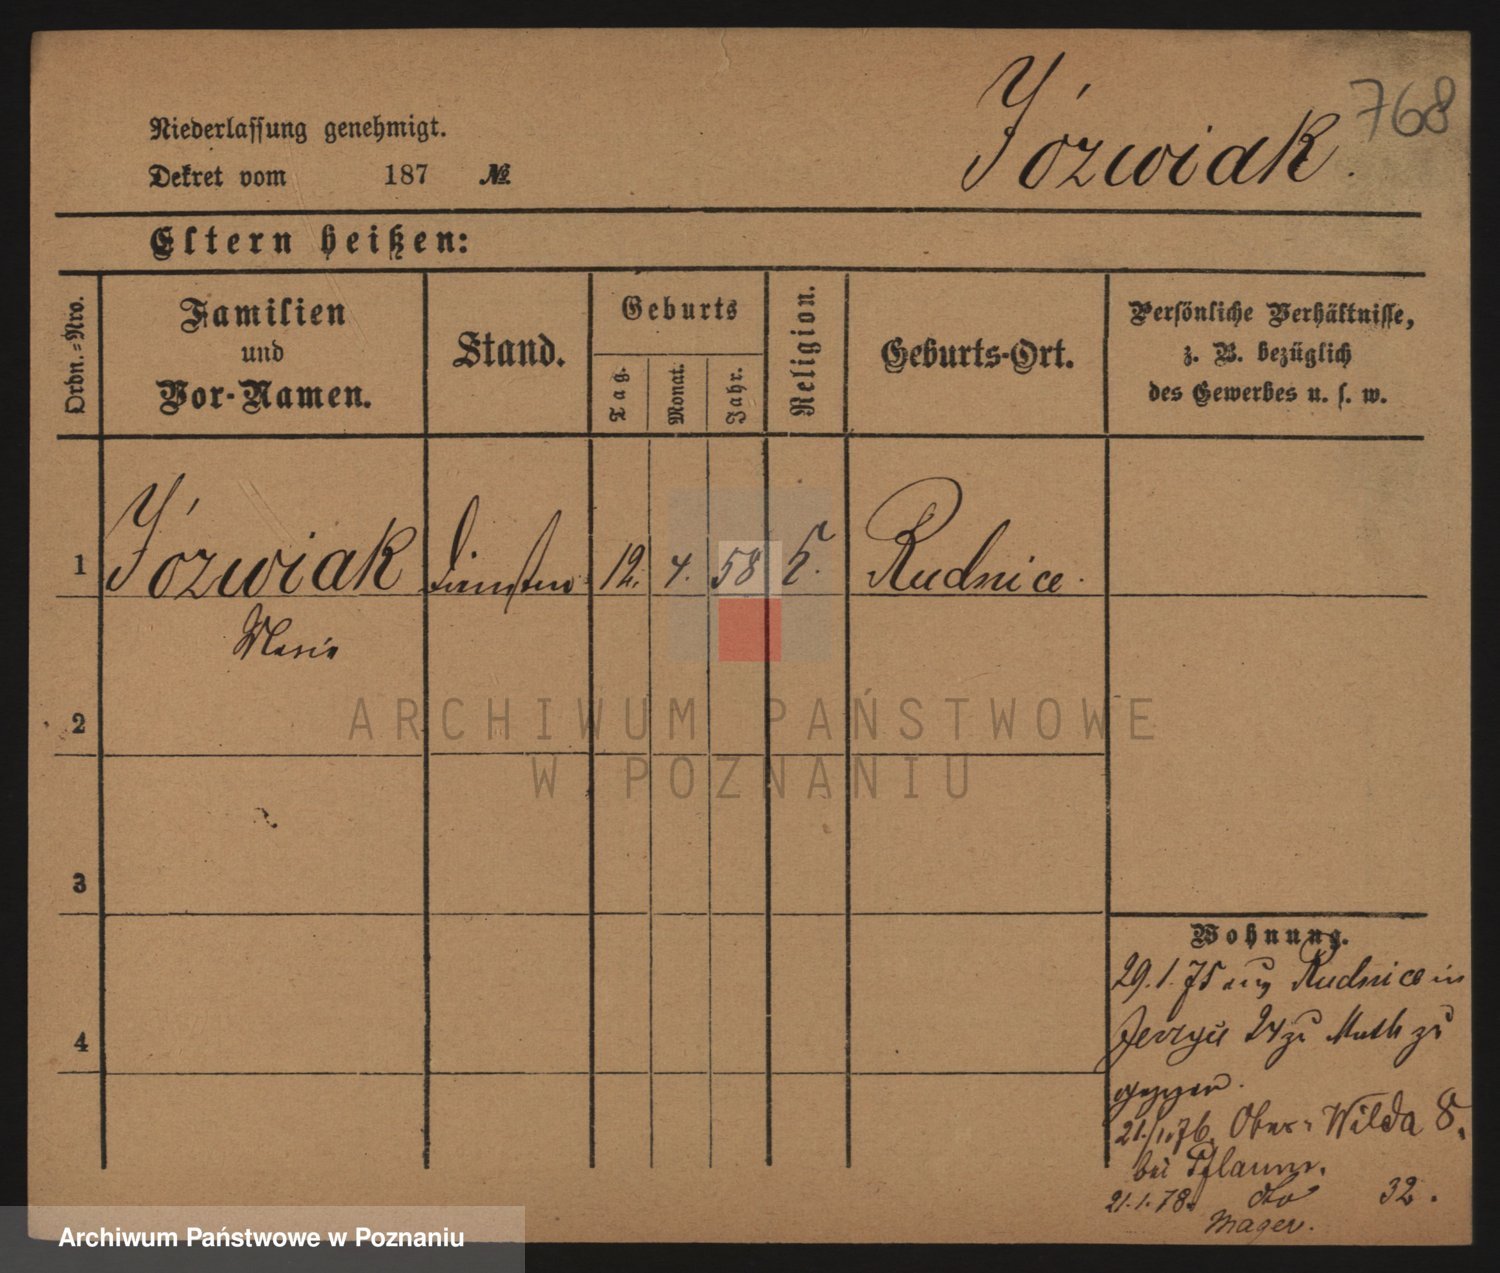 768
Józwiak.
Niederlassung genehmigt.
Dekret vom 187 №
Eltern heißen:
Ordn.-Nro.
Familien
und
Vor-Namen.
Stand.
Geburts
Tag.
Monat.
Jahr.
Religion.
Geburts-Ort.
Persönliche Verhältnisse,
z. B. bezüglich
des Gewerbes u. s. w.
1 Józwiak 12. 4. 58 Rudnice.
Maria
2
3
4
Wohnung.
29.1.75 aus Rudnice in
Jerzyce 24 zu Muth zu
gezogen.
21./1.76. Ober-Wilda 8.
bei Pflaum.
21.1.78. dto 32.
Mager.
ARCHIWUM PAŃSTWOWE
W POZNANIU
Archiwum Państwowe w Poznaniu